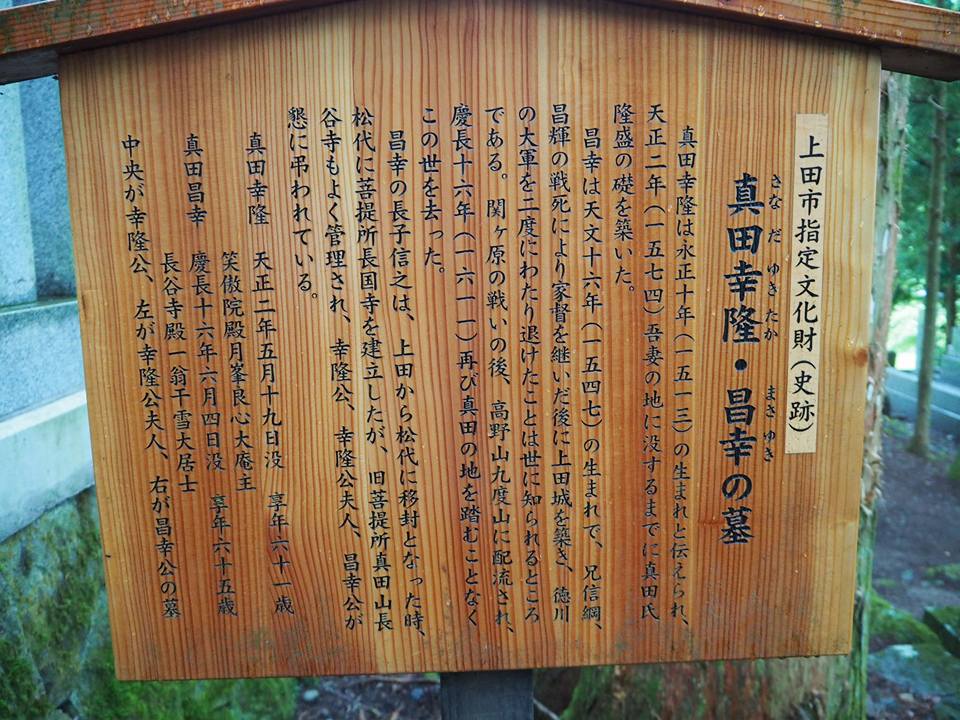 上田市指定文化財(史跡)
さなだ ゆきたか まさゆき
真田幸隆・昌幸の墓
真田幸隆は永正十年(一五一三)の生まれと伝えられ、
天正二年(一五七四)吾妻の地に没するまでに真田氏
隆盛の礎を築いた。
昌幸は天文十六年(一五四七)の生まれで、兄信綱、
昌輝の戦死により家督を継いだ後に上田城を築き、徳川
の大軍を二度にわたり退けたことは世に知られるところ
である。関ヶ原の戦いの後、高野山九度山に配流され、
慶長十六年(一六一一)再び真田の地を踏むことなく
この世を去った。
昌幸の長子信之は、上田から松代に移封となった時、
松代に菩提所長国寺を建立したが、旧菩提所真田山長
谷寺もよく管理され、幸隆公、幸隆公夫人、昌幸公が
懇に弔われている。
真田幸隆 天正二年五月十九日没 享年六十一歳
笑傲院殿月峯良心大庵主
真田昌幸 慶長十六年六月四日没 享年六十五歳
長谷寺殿一翁干雪大居士
中央が幸隆公、左が幸隆公夫人、右が昌幸公の墓